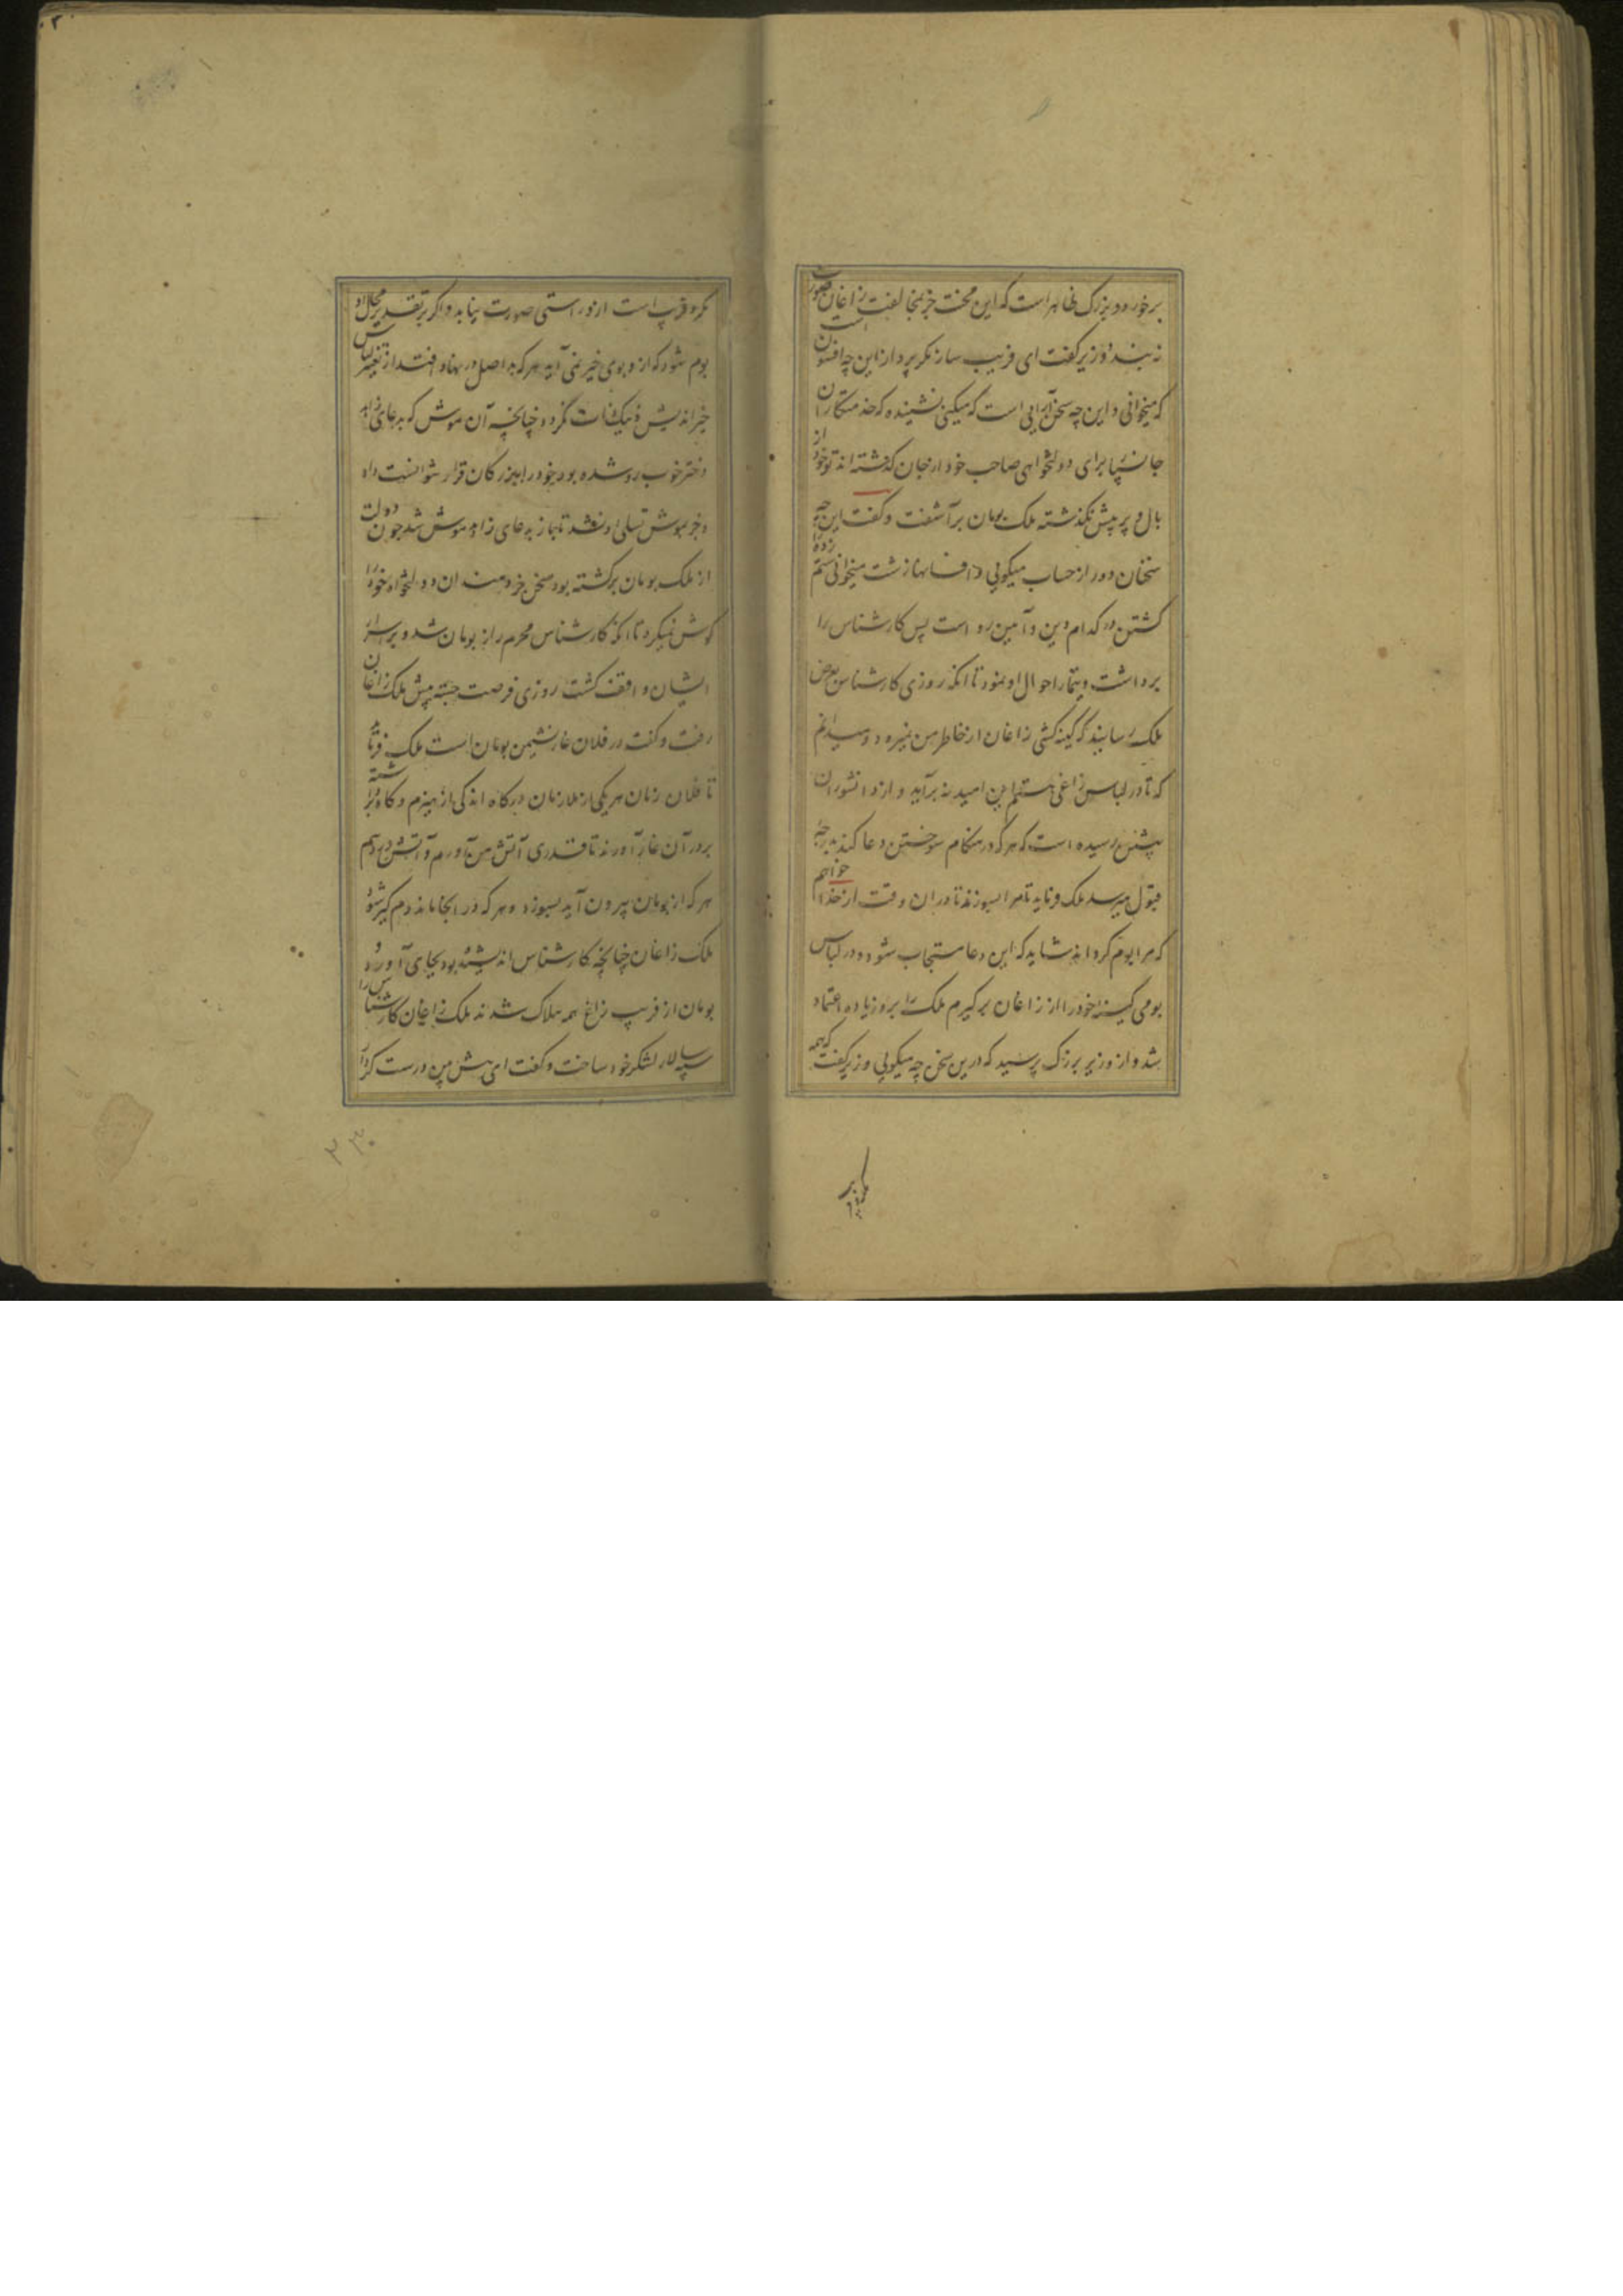 برخورد و بزرگ ظاهر است که این محنت جز بمخالفت زاغان صورت
نه بندد وزیر گفت ای فریب ساز مکر پرداز این چه افسون است
که میخوانی و این چه سخن آرایی است که میکنی نشنیده که خدمتکاران
جان سپار برای دولتخواهی صاحب خود از جان گذشته اند تو خود از
بال و پر پیش نگذشته ملک بومان برآشفت و گفت این چه
سخنان دور از حساب میگویی و افسانها زشت میخوانی ستم زده را
کشتن در کدام دین و آیین روا است پس کارشناس را
برداشت و تیمار احوال او نمود تا انکه روزی کارشناس بعرض
ملک رسانید که کینه کشی زاغان از خاطر من نمیرود و میدانم
که تا در لباس زاغی هستم این امید نه برآید و از دانشوران
پیشین رسیده است که هرکه در هنگام سوختن دعا کند بدرجه
قبول میرسد ملک فرماید تا مرا بسوزند تا دران وقت از خدا خواهم
که مرا بوم گرداند شاید که این دعا مستجاب شود و در لباس
بومی کینه خود را از زاغان برگیرم ملک را برو زیاده اعتماد
شد و از وزیر بزرگ پرسید که درین سخن چه میگویی وزیر گفت که همه
مکر و فریب است از و راستی صورت نیابد و اگر بتقدیر محال او
بوم شود که از و بوی خیر نمی آید هر که بد اصل در نهاد افتد از تغییر لباس
خیراندیش و نیک ذات نگردد چنانچه آن موش که بدعای زاهد
دختر خوب رو شده بود خود را ببزرگان قرار نتوانست داد
و جز بموش تسلی او نشد تا باز بدعای زاهد موش شد چون دولت
از ملک بومان برگشته بود سخن خردمندان و دولتخواه خود را
گوش نمیکرد تا انکه کارشناس محرم راز بومان شد و بر اسرار
ایشان واقف گشت روزی فرصت جسته پیش ملک زاغان
رفت و گفت در فلان غار نشیمن بومان است ملک فرماید
تا فلان زمان هر یکی از ملازمان درگاه اندکی از هیزم و کاه برداشته
بر در آن غار آورند تا قدری آتش من آورم و آتش در دهیم
هر که از بومان بیرون آید بسوزد و هر که در انجا ماند دم گیر شود
ملک زاغان چنانچه کارشناس اندیشیده بود بجای آورد و
بومان از فریب زاغ همه هلاک شدند ملک زاغان کارشناس را
سپه سالار لشکر خود ساخت و گفت ای